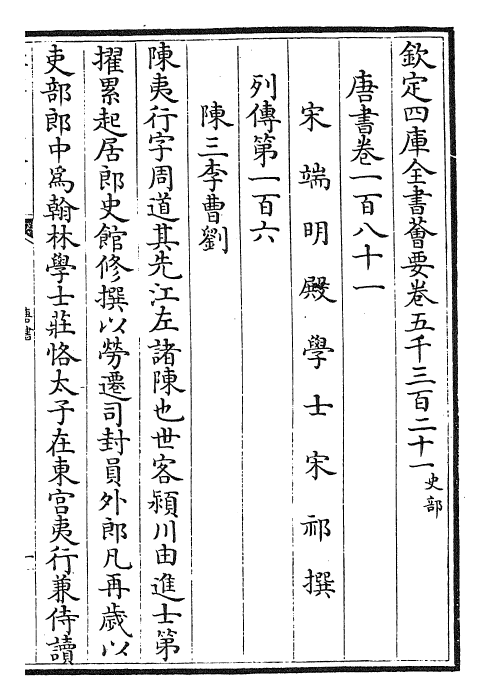 欽定四庫全書薈要卷五千三百二十一史部
唐書卷一百八十一
宋端明殿學士宋祁撰
列傳第一百六
陳三李曹劉
陳夷行字周道其先江左諸陳也世客潁川由進士第
擢累起居郎史館修撰以勞遷司封員外郎凡再歲以
吏部郎中為翰林學士莊恪太子在東宮夷行兼侍讀
唐書